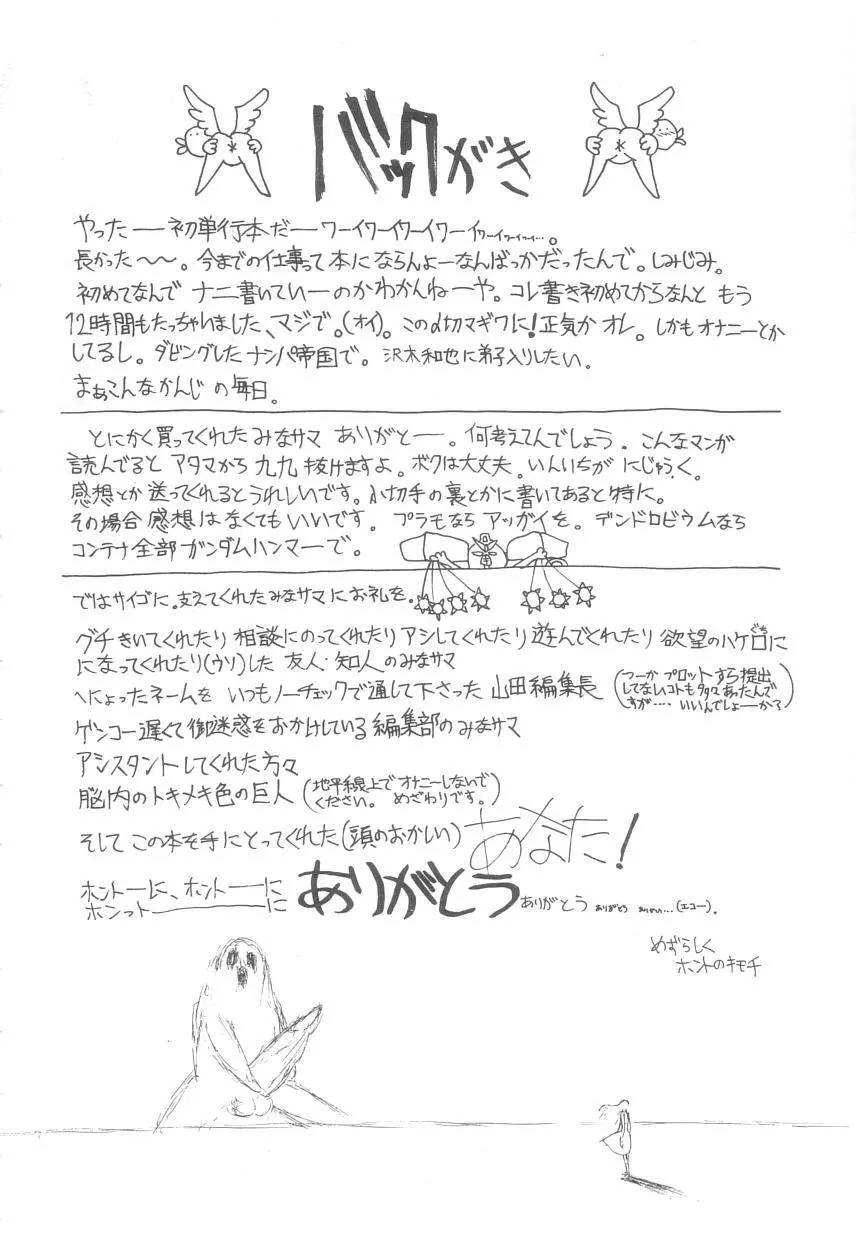 バックがき
やったー初単行本だーワーイワーイワーイワーイワーイワーイワーイ…。
長かった〜〜。今までの仕事って本にならんよーなんばっかだったんで。しみじみ。
初めてなんで ナニ書いていーのかわかんねーや。コレ書き初めてからなんと もう
12時間もたっちゃいました、マジで。(オイ)。この〆切マギワに!正気か オレ。しかもオナニーとか
してるし。ダビングしたナンパ帝国で。沢木和也に弟子入りしたい。
まぁこんなかんじの毎日。
とにかく買ってくれたみなサマ ありがとー。何考えてんでしょう。こんなマンガ
読んでると アタマから九九抜けますよ。ボクは大丈夫。いんいちが にじゅうく。
感想とか送ってくれるとうれしいです。小切手の裏とかに書いてあると特に。
その場合 感想はなくてもいいです。プラモなら アッガイを。デンドロビウムなら
コンテナ全部ガンダムハンマーで。
ではサイゴに。支えてくれたみなサマにお礼を。
グチきいてくれたり 相談にのってくれたり アシしてくれたり 遊んでくれたり 欲望のハケ口に
ぐち
になってくれたり(ウソ)した 友人・知人のみなサマ
へにょったネームを いつもノーチェックで通して下さった 山田編集長
(つーか プロットすら提出
してないコトも多々あったんで
すが…. いいんでしょーか?)
ゲンコー遅くて御迷惑をおかけしている編集部のみなサマ
アシスタントしてくれた方々
脳内のトキメキ色の巨人
(地平線上でオナニーしないで
ください。 めざわりです。)
そして この本を手にとってくれた(頭のおかしい) あなた!
ホントーに、ホントーに
ホンットーーーに
ありがとう ありがとう ありがとう …(エコー)。
めずらしく
ホントのキモチ